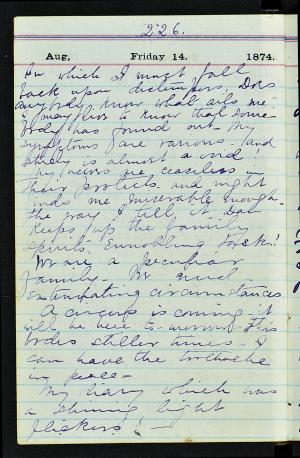 226.
Aug, Friday 14. 1874.
on which I must fall
back upon dictum. Does
anybody know what ails me
I may live to know that some
body has found out. My
symptoms are various. and
is almost a void
My nerves are ceaseless in
their protests and night
finds me miserable enough.
the way I tell it. Dad
keeps up the family
spirits. Ennobling
We are a peculiar
family.
extenuating circumstances
A circus is coming. it
will be here to-morrow. This
bodes stiller times. I
can have the toothache
in peace.
My diary which was
a shining light
flickers! —